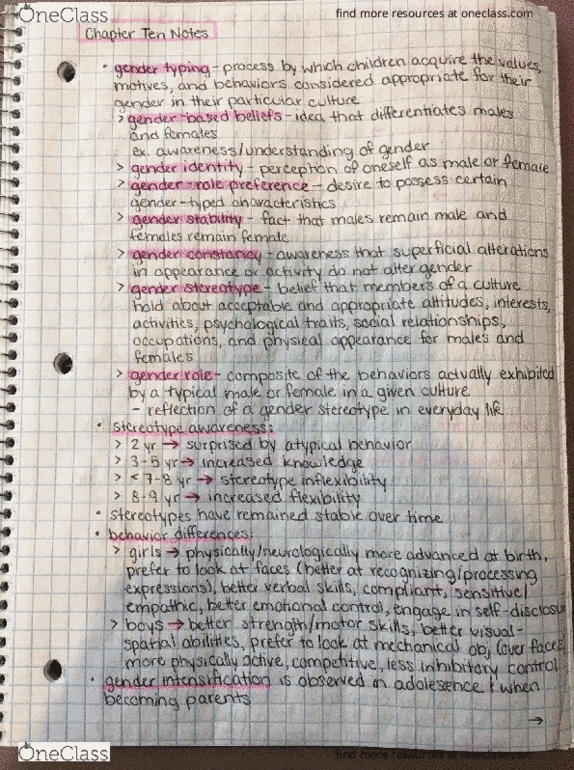 OneClass
find more resources at oneclass.com
Chapter Ten Notes
• gender typing - process by which children acquire the values,
motives, and behaviors considered appropriate for their
gender in their particular culture
> gender-based beliefs - idea that differentiates males
and females
ex. awareness/understanding of gender
> gender identity - perception of oneself as male or female
> gender-role preference - desire to possess certain
gender-typed characteristics
> gender stability - fact that males remain male and
females remain female
> gender constancy - awareness that superficial alterations
in appearance or activity do not alter gender
> gender stereotype - belief that members of a culture
hold about acceptable and appropriate attitudes, interests,
activities, psychological traits, social relationships,
occupations, and physical appearance for males and
females
> gender role - composite of the behaviors actually exhibited
by a typical male or female in a given culture
- reflection of a gender stereotype in everyday life
• stereotype awareness:
> 2 yr → surprised by atypical behavior
> 3-5 yr → increased knowledge
> < 7-8 yr → stereotype inflexibility
> 8-9 yr → increased flexibility
• stereotypes have remained stable over time
• behavior differences:
> girls → physically/neurologically more advanced at birth,
prefer to look at faces (better at recognizing/processing
expressions), better verbal skills, compliant, sensitive/
empathic, better emotional control, engage in self-disclosu
> boys → better strength/motor skills, better visual-
spatial abilities, prefer to look at mechanical obj (over faces
more physically active, competitive, less inhibitory control
• gender intensification is observed in adolesence & when
becoming parents
→
OneClass
find more resources at oneclass.com